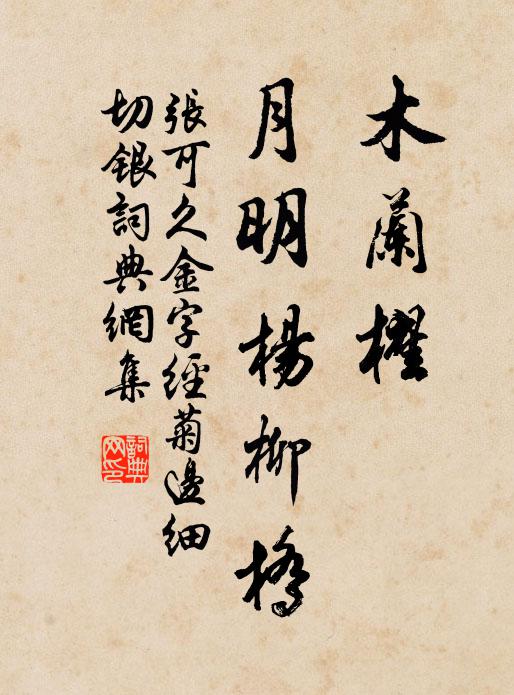 木蘭櫂
月明楊柳橋
張可久金字經菊邊細
切銀詞典網集
詞典
网印